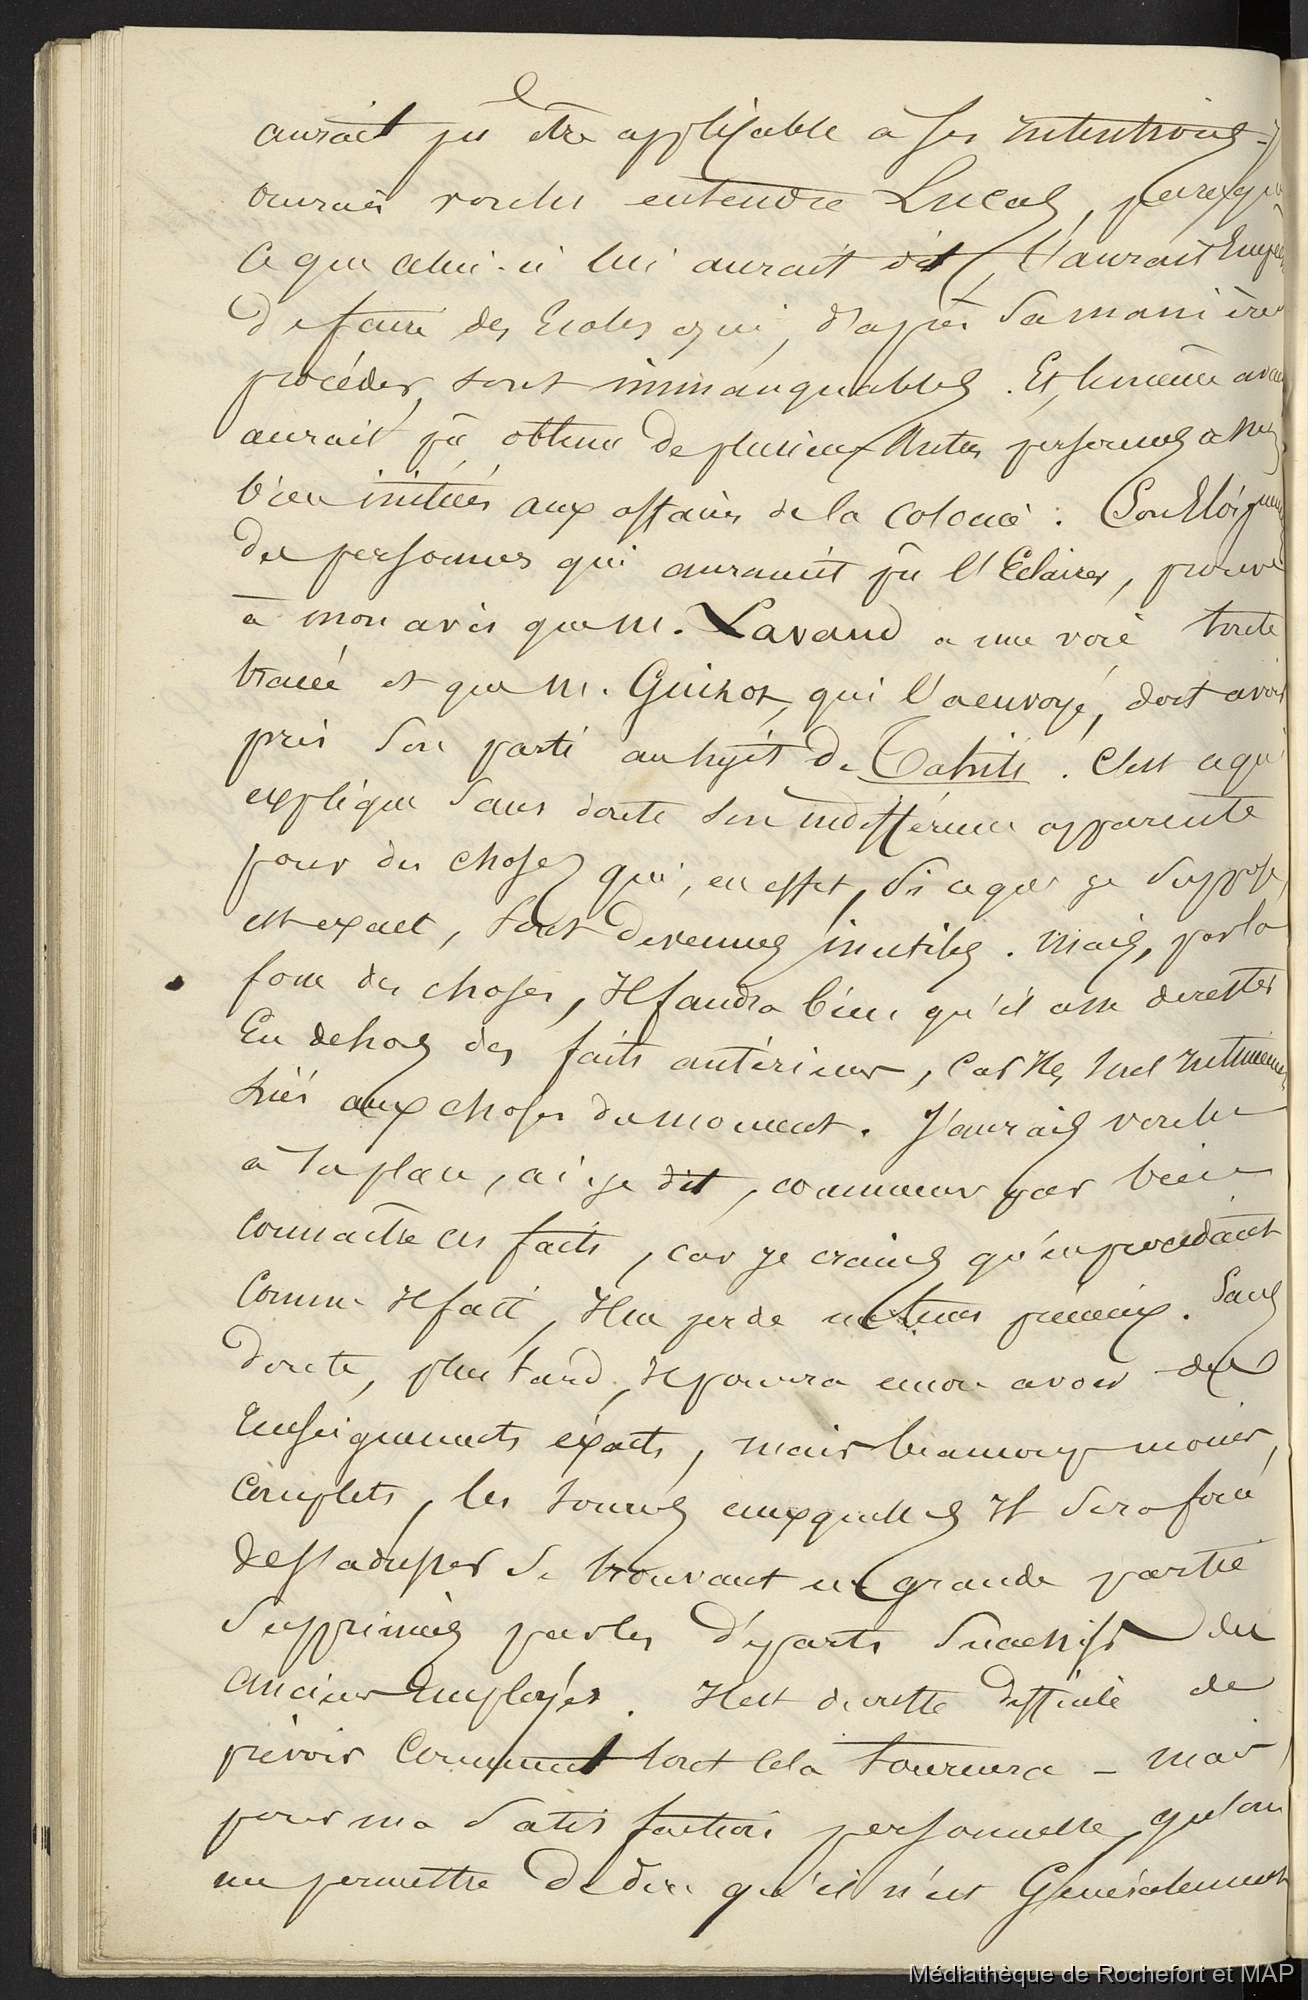 aurait pu être applicable à ses intentions - j'
aurais voulu entendre Lucas, parceque
ce que celui-ci lui aurait dit, l'aurait
de faire des Ecoles qui, d'après sa manière
procéder, sont immanquables. Et, lumière
aurait pû obtenir de plusieurs autres personnes
bien initiées aux affaires de la colonie. Son
des personnes qui auraient pû l'Eclairer, prouve
à mon avis que M. Lavaud a une voie toute
tracée et que M. Guizot, qui l'a envoyé, doit avoir
pris son parti au sujet de Tahiti. C'est ce qui
explique sans doute son indifférence apparente
pour des choses qui, en effet, si ce que je suppose
est exact, sont devenues inutiles. Mais, par la
force des choses, Il faudra bien qu'il
En dehors des faits antérieurs, car Ils sont Intimement
liés aux choses du moment. J'aurais voulu
à sa place, ai-je dit, commencer par bien
connaître ces faits, car je crains qu'en procédant
comme Il fait, Il ne perde un tems précieux. Sans
doute, plus tard, Il pourra encore avoir des
Enseignements éxacts, mais beaucoup moins,
complets, les sources auxquelles Il sera forcé
de s'adresser se trouvant en grande partie
supprimées par les départs successifs des
anciens Employés. Il est du reste difficile de
prévoir comment tout cela tournera - mais
pour ma satisfaction personnelle, qu'on
me permette de dire qu'il n'est Généralement
Médiathèque de Rochefort et MAP